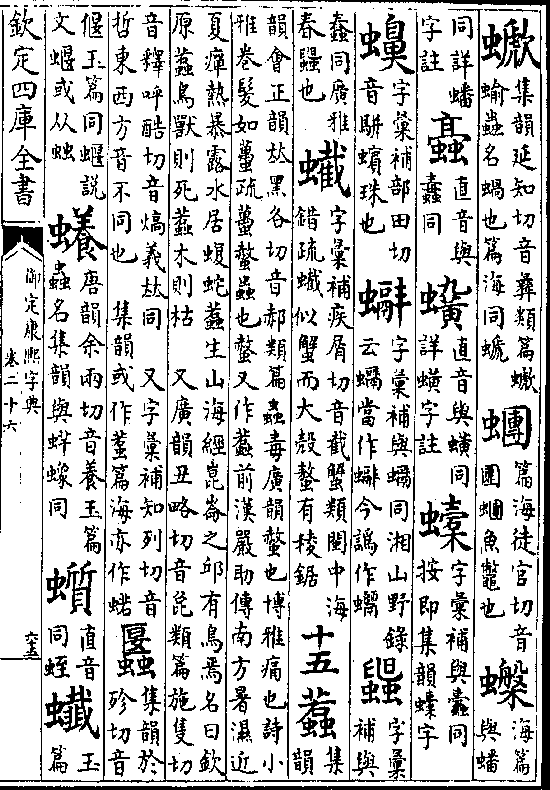 集韻延知切音彝類篇
蝓蟲名蝸也篇海同螔
篇海徒官切音
魚鼈也
海篇
與蟠
同詳蟠
字註
直音與
蠹同
直音與蟥同
詳蟥字註
字彙補與蠹同
按即集韻螙字
字彙補部田切
音駢蠙珠也
字彙補與蠣同湘山野錄
云蠣當作今譌作蠣
字彙
補與
蠢同廣雅
春也
蠘
字彙補疾屑切音截蟹類閩中海
錯疏蠘似蟹而大殻螯有稜鋸
十五
蠚
集
韻
韻會正韻𠀤黑各切音郝類篇蟲毒廣韻螫也博雅痛也詩小
雅卷髮如蠆疏蠆螫蟲也螫又作蠚前漢嚴助傳南方暑濕近
夏癉熱暴露水居蝮蛇蠚生山海經崑崙之邱有鳥焉名曰欽
原蠚鳥獸則死蠚木則枯 又廣韻丑略切音㲋類篇施隻切
音釋呼酷切音熇義𠀤同 又字彙補知列切音
哲東西方音不同也 集韻或作篇海亦作
集韻於
殄切音
偃玉篇同蝘說
文蝘或从䖵
唐韻余兩切音養玉篇
蟲名集韻與蛘同
直音
同蛭
玉
篇
欽定四庫全書
御定康熙字典
卷二十六